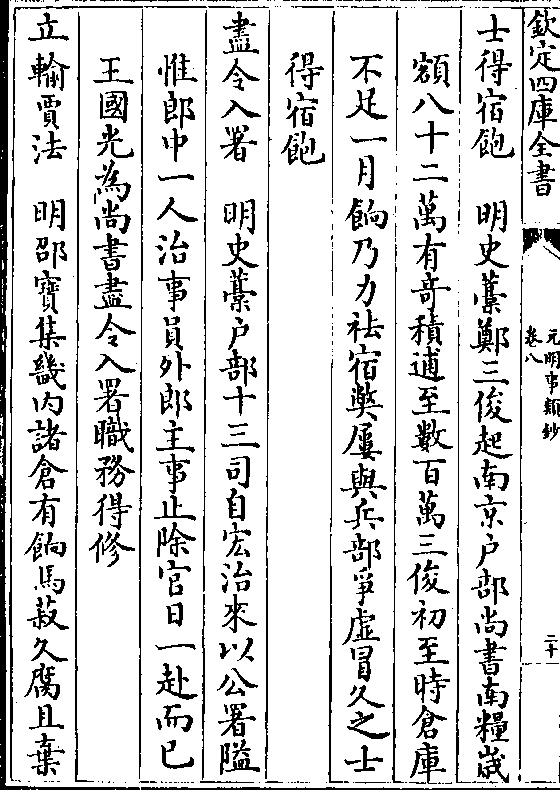 欽定四庫全書
元明事類鈔
卷八
二十
士得宿飽　明史藁鄭三俊起南京户部尚書南糧歲
額八十二萬有奇積逋至數百萬三俊初至時倉庫
不足一月餉乃力祛宿弊屢與兵部爭虛冒久之士
得宿飽
盡令入署　明史藁户部十三司自宏治來以公署隘
惟郎中一人治事員外郎主事止除官日一赴而已
王國光為尚書盡令入署職務得修
立輸賈法　明邵寶集畿内諸倉有餉馬菽久腐且棄